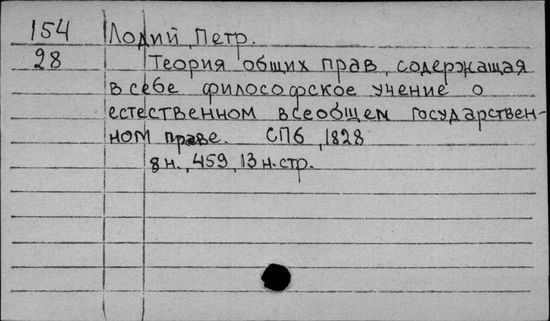 154 Лодий, Петр.
28 Теория общих прав, содержащая
в себе философское учение о
естественном всеобщем государствен-
ном праве. СПб, 1828
8 н., 459, 13 н. стр.